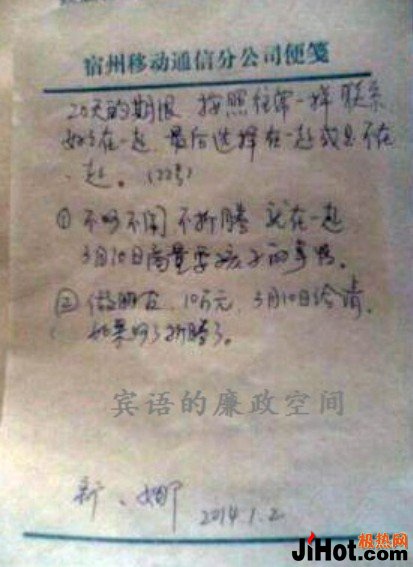 宿州移动通信分公司便笺
20天的期限 按照往常一样联系
好好在一起 最后选择在一起或是不在
一起。(22号)
① 不吵不闹不折腾 就在一起
3月10日商量要孩子的事情。
② 做朋友, 10万元, 3月10日给清,
如果吵了折腾了。
宾语的廉政空间
新、娜 2014.1.2
极热网
JiHot.com